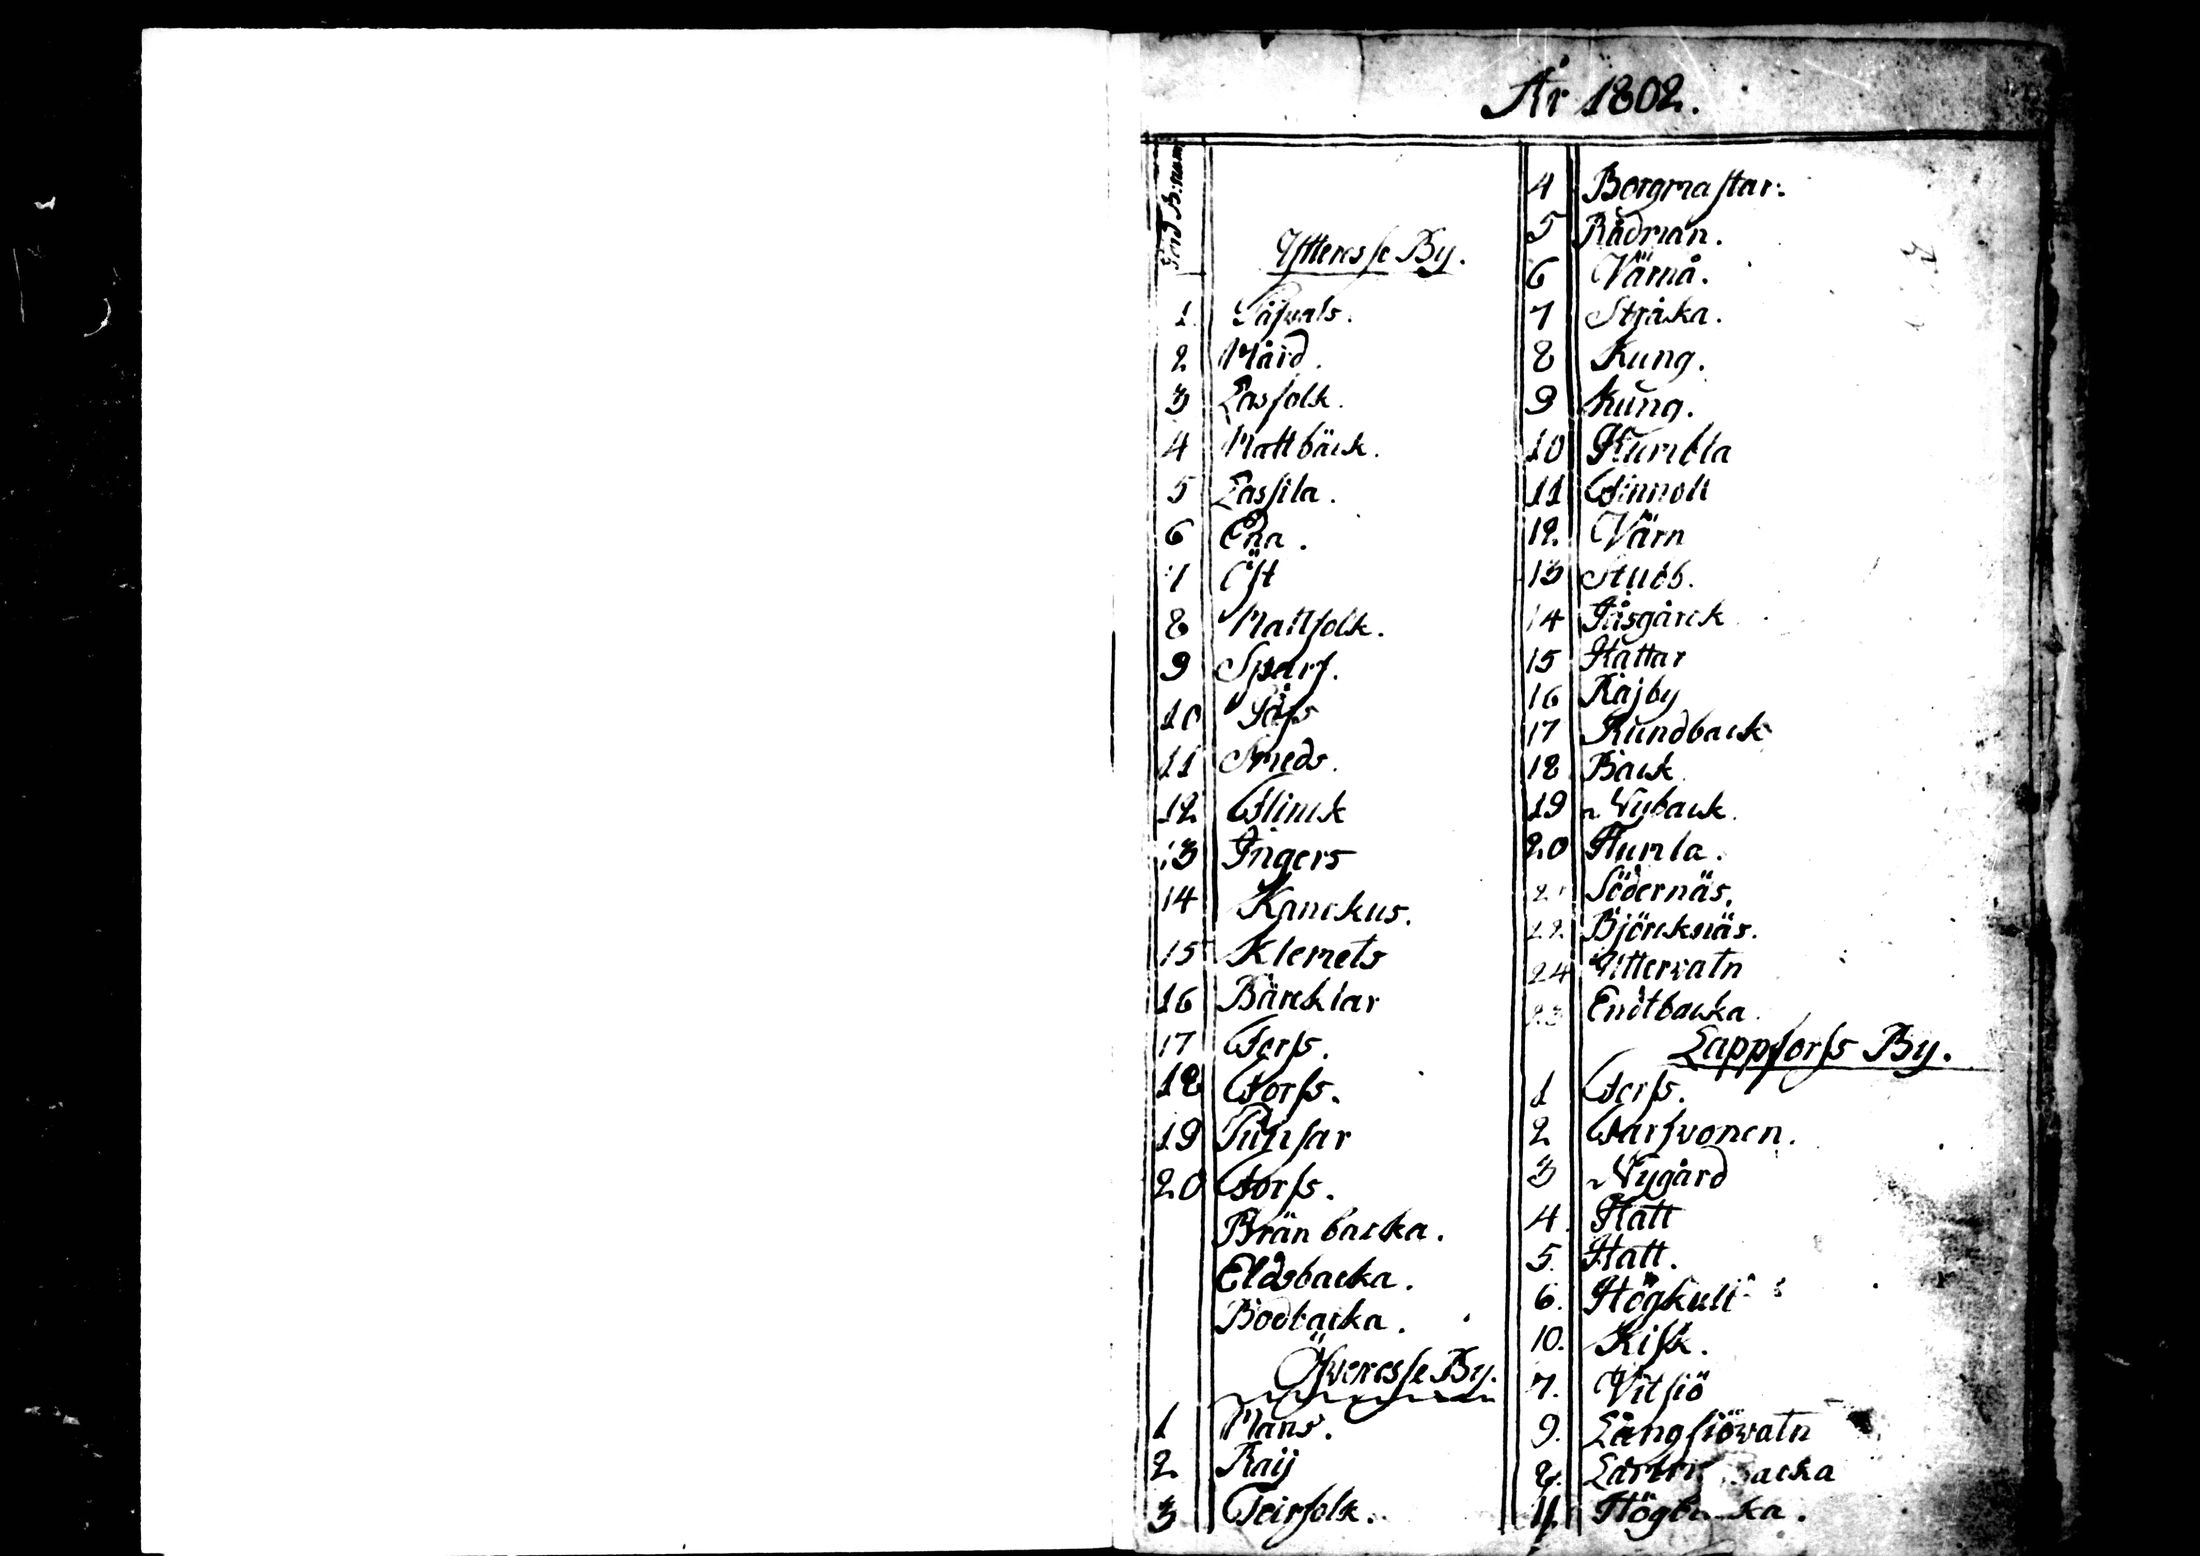 År 1802.
Jord B: num
Ytteresse By.
1 Påfvals.
2 Mård.
3 Lasfolk.
4 Mattbäck.
5 Lassila.
6 Ena.
7 Öst
8 Mattfolk.
9 Sparf.
10 Påss
11 Smeds.
12 Flinck
13 Ingers
14 Kanckus.
15 Klemets
16 Bäncklar
17 Forss.
18 Forss.
19 Punsar
20 Forss.
Bränbacka.
Eldsbacka.
Bodbacka.
Öfveresse By.
1 Måns.
2 Raij
3 Teirfolk.
4 Borgmästar.
5 Rådman.
6 Värnå.
7 Stråka.
8 Kung.
9 Kung.
10 Humbla
11 Finnolt
12. Värn
13 Stubb.
14 Gåsgårck
15 Hattar
16 Räjby
17 Kundback
18 Back
19 Nyback.
20 Humla.
21 Södernäs.
22. Björcknäs.
24 Yttervatn
23 Endtbacka
Lappforss By.
1 Forss.
2 Farsvonen.
3 Nygård
4. Hatt
5. Hatt.
6. Högkult
10. Kisk.
7. Vitsiö
9. Långsiövatn
8. backa
11. Högbacka.